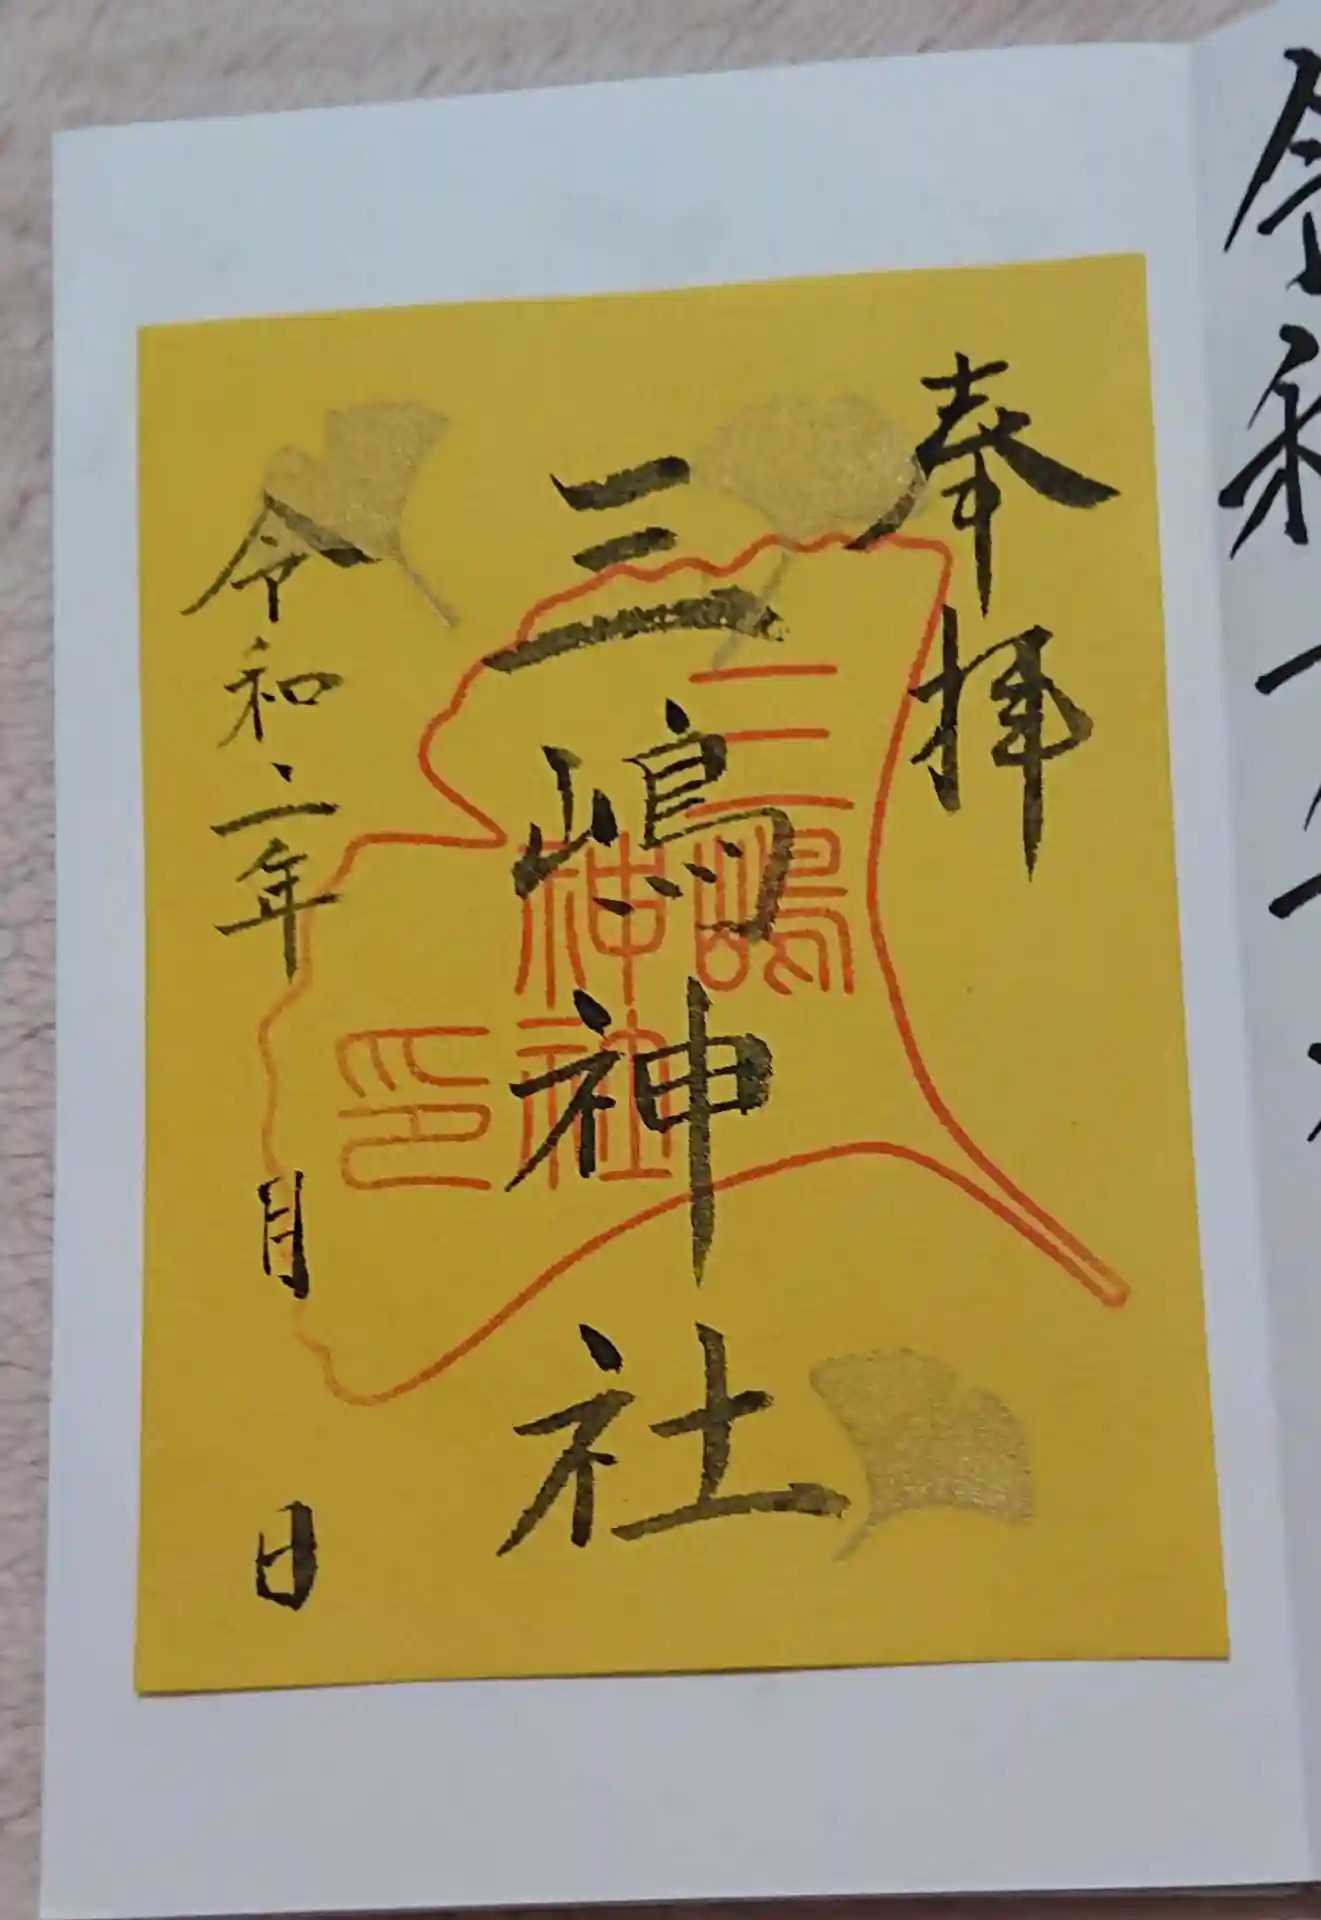 奉拝
三嶋神社
三嶋
神社
印
令和二年 月 日
令和